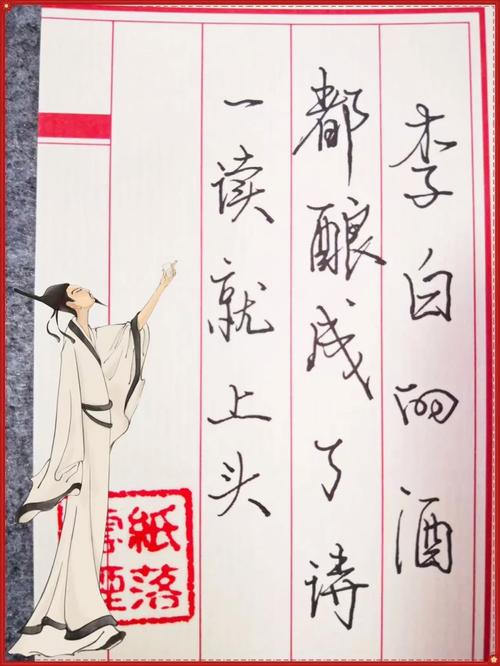 李白的酒
都酿成了诗
一读就上头
紙落
雲煙